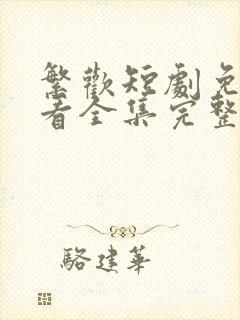 繁歡短劇免
看全集完整
駱建華